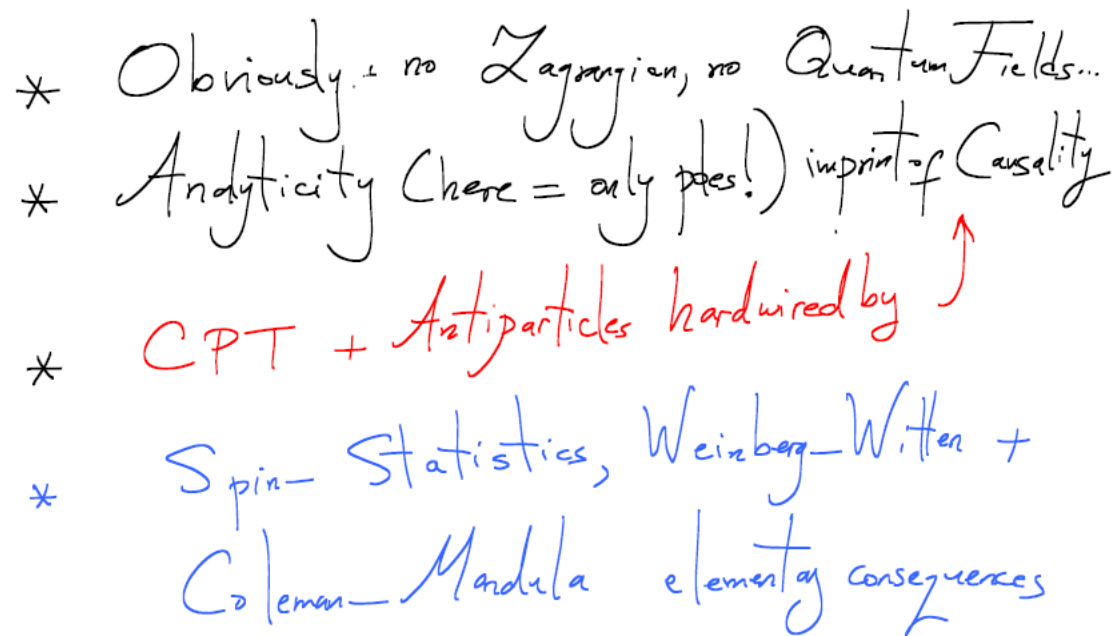 * Obviously - no Lagrangian, no Quantum Fields...
* Analyticity (here = only poles!) imprint of Causality
* CPT + Antiparticles hardwired by ↑
* Spin-Statistics, Weinberg-Witten +
Coleman-Mandula elementary consequences